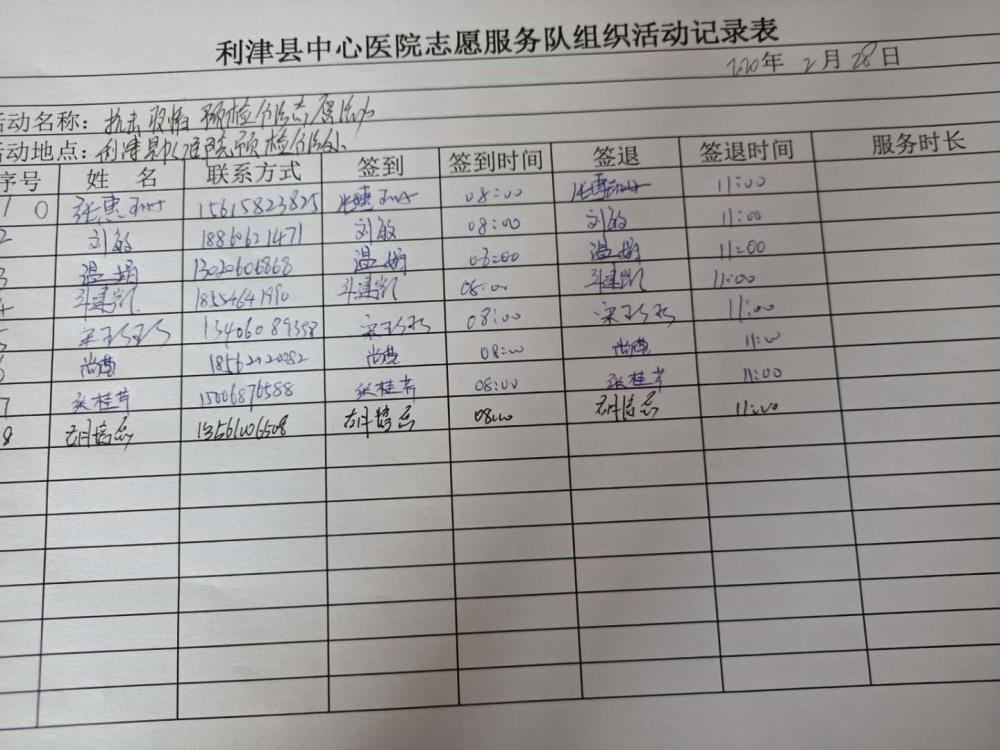 利津县中心医院志愿服务队组织活动记录表
2020年 2月 28日
活动名称：抗击疫情 预检分诊志愿活动
活动地点：利津县中心医院预检分诊处
序号 姓 名 联系方式 签到 签到时间 签退 签退时间 服务时长
1 0 张惠 15615823825 张惠 08:00 张惠 11:00
2 刘敏 18860621471 刘敏 08:00 刘敏 11:00
3 温娟 13020606868 温娟 08:00 温娟 11:00
4 18554641990 08:00 11:00
5 宋玲玲 13406089358 宋玲玲 08:00 宋玲玲 11:00
6 尚燕 尚燕 08:00 尚燕 11:00
7 张桂芹 15006876588 张桂芹 08:00 张桂芹 11:00
8 13561006508 08:00 11:00